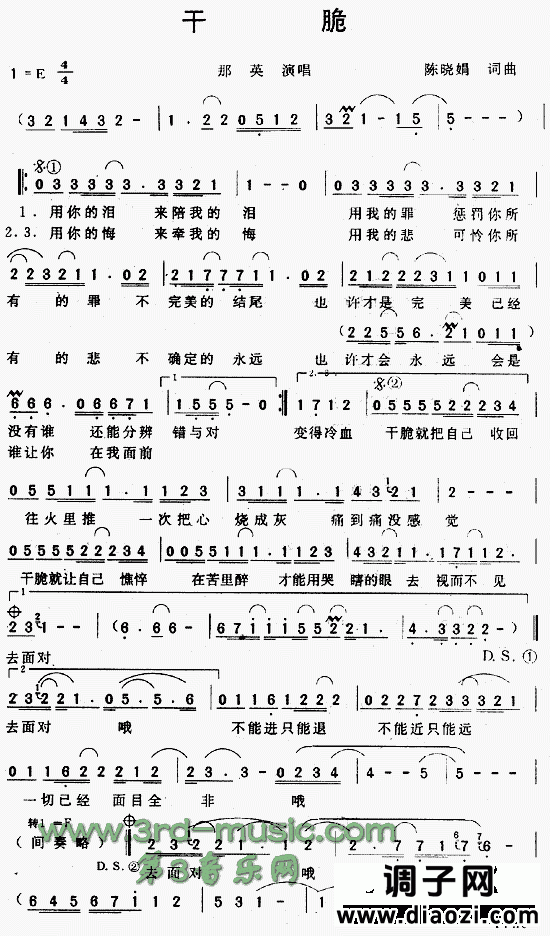 干 脆
1=E 4/4 那 英 演唱 陈晓娟 词曲
(3 2 1 4 3 2 - | 1 . 2 2 0 5 1 2 | 3 2 1 - 1 5 | 5 - - -)
𝄋①
0 3 3 3 3 3 . 3 3 2 1 | 1 - - 0 | 0 3 3 3 3 3 . 3 3 2 1
1. 用你的泪 来陪我的 泪 用我的罪 惩罚你所
2.3. 用你的悔 来牵我的 悔 用我的悲 可怜你所
2 2 3 2 1 1 . 0 2 | 2 1 7 7 7 1 1 . 0 2 | 2 1 2 2 2 3 1 1 0 1 1
有 的 罪 不 完美的 结尾 也 许才是 完 美已经
(2 2 5 5 6 . 2 1 0 1 1)
有 的 悲 不 确定的 永远 也 许才会 永 远 会是
6 6 6 . 0 6 6 7 1 | 1 5 5 5 - 0 | 1 7 1 2 | 0 5 5 5 5 5 2 2 2 3 4
1. 2. 3. 𝄋②
没有谁 还能分辨 错与对 变得冷血 干脆就把自己 收回
谁让你 在我面前
0 5 5 1 1 1 . 1 1 2 3 | 3 1 1 1 . 1 4 3 2 1 | 2 - - -
往火里推 一次把心 烧成灰 痛到痛没感 觉
0 5 5 5 5 5 2 2 2 3 4 | 0 0 5 5 1 1 1 . 1 1 2 3 | 4 3 2 1 1 . 1 7 1 1 2 .
干脆就让自己 憔悴 在苦里醉 才能用哭 瞎的眼 去 视而不 见
1
2 3 1 - - | (6 . 6 6 - | 6 7 1 1 1 5 5 2 2 1 . | 4 . 3 3 2 2 -)
去面对 D.S.①
2
2 3 2 2 1 . 0 5 . 5 . | 0 1 1 1 6 1 2 2 2 | 0 2 2 7 2 3 3 3
去面对 哦 不能进只能退 不能近只能远
0 1 1 6 2 2 2 1 2 | 2 3 . 3 . 0 2 3 4 | 4 - - 5 | 5 - - 5
一切已经 面目全 非 哦
转1=F
www.3rd-music.com
(间奏略)
D.S.② 去面对 哦
第3音乐网
调子网
www.diaozi.com